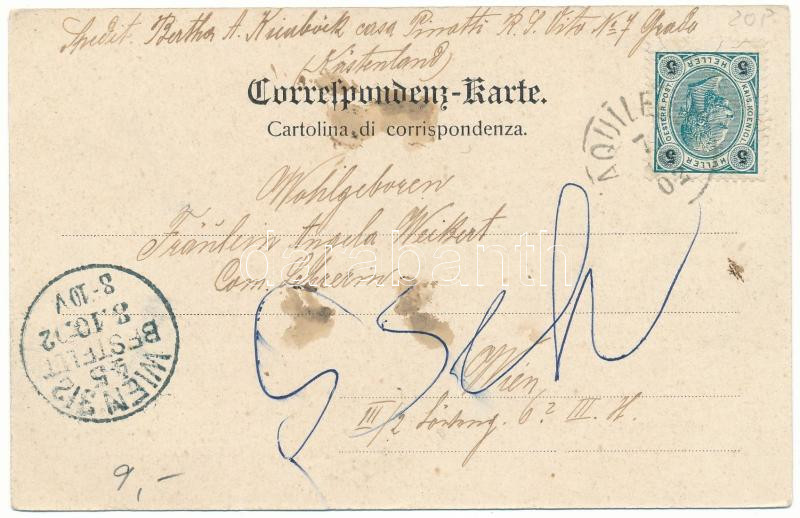 20P
Spedit. Bertha A. casa Pinatti R. S. Vito No 7 Grado
(Küstenland)
Correspondenz-Karte.
Cartolina di corrispondenza.
5 HELLER 5
KAIS. KOENIGL.
OESTERR. POST
5 HELLER 5
AQUILE
02
Wohlgeboren
Fräulein Angela Weikert
Com. Lehrerin
Wien
III/2 6? III. H.
WIEN 3/2
45
BESTELLT
8.10.02
8-10V
B
9,-
darabanth